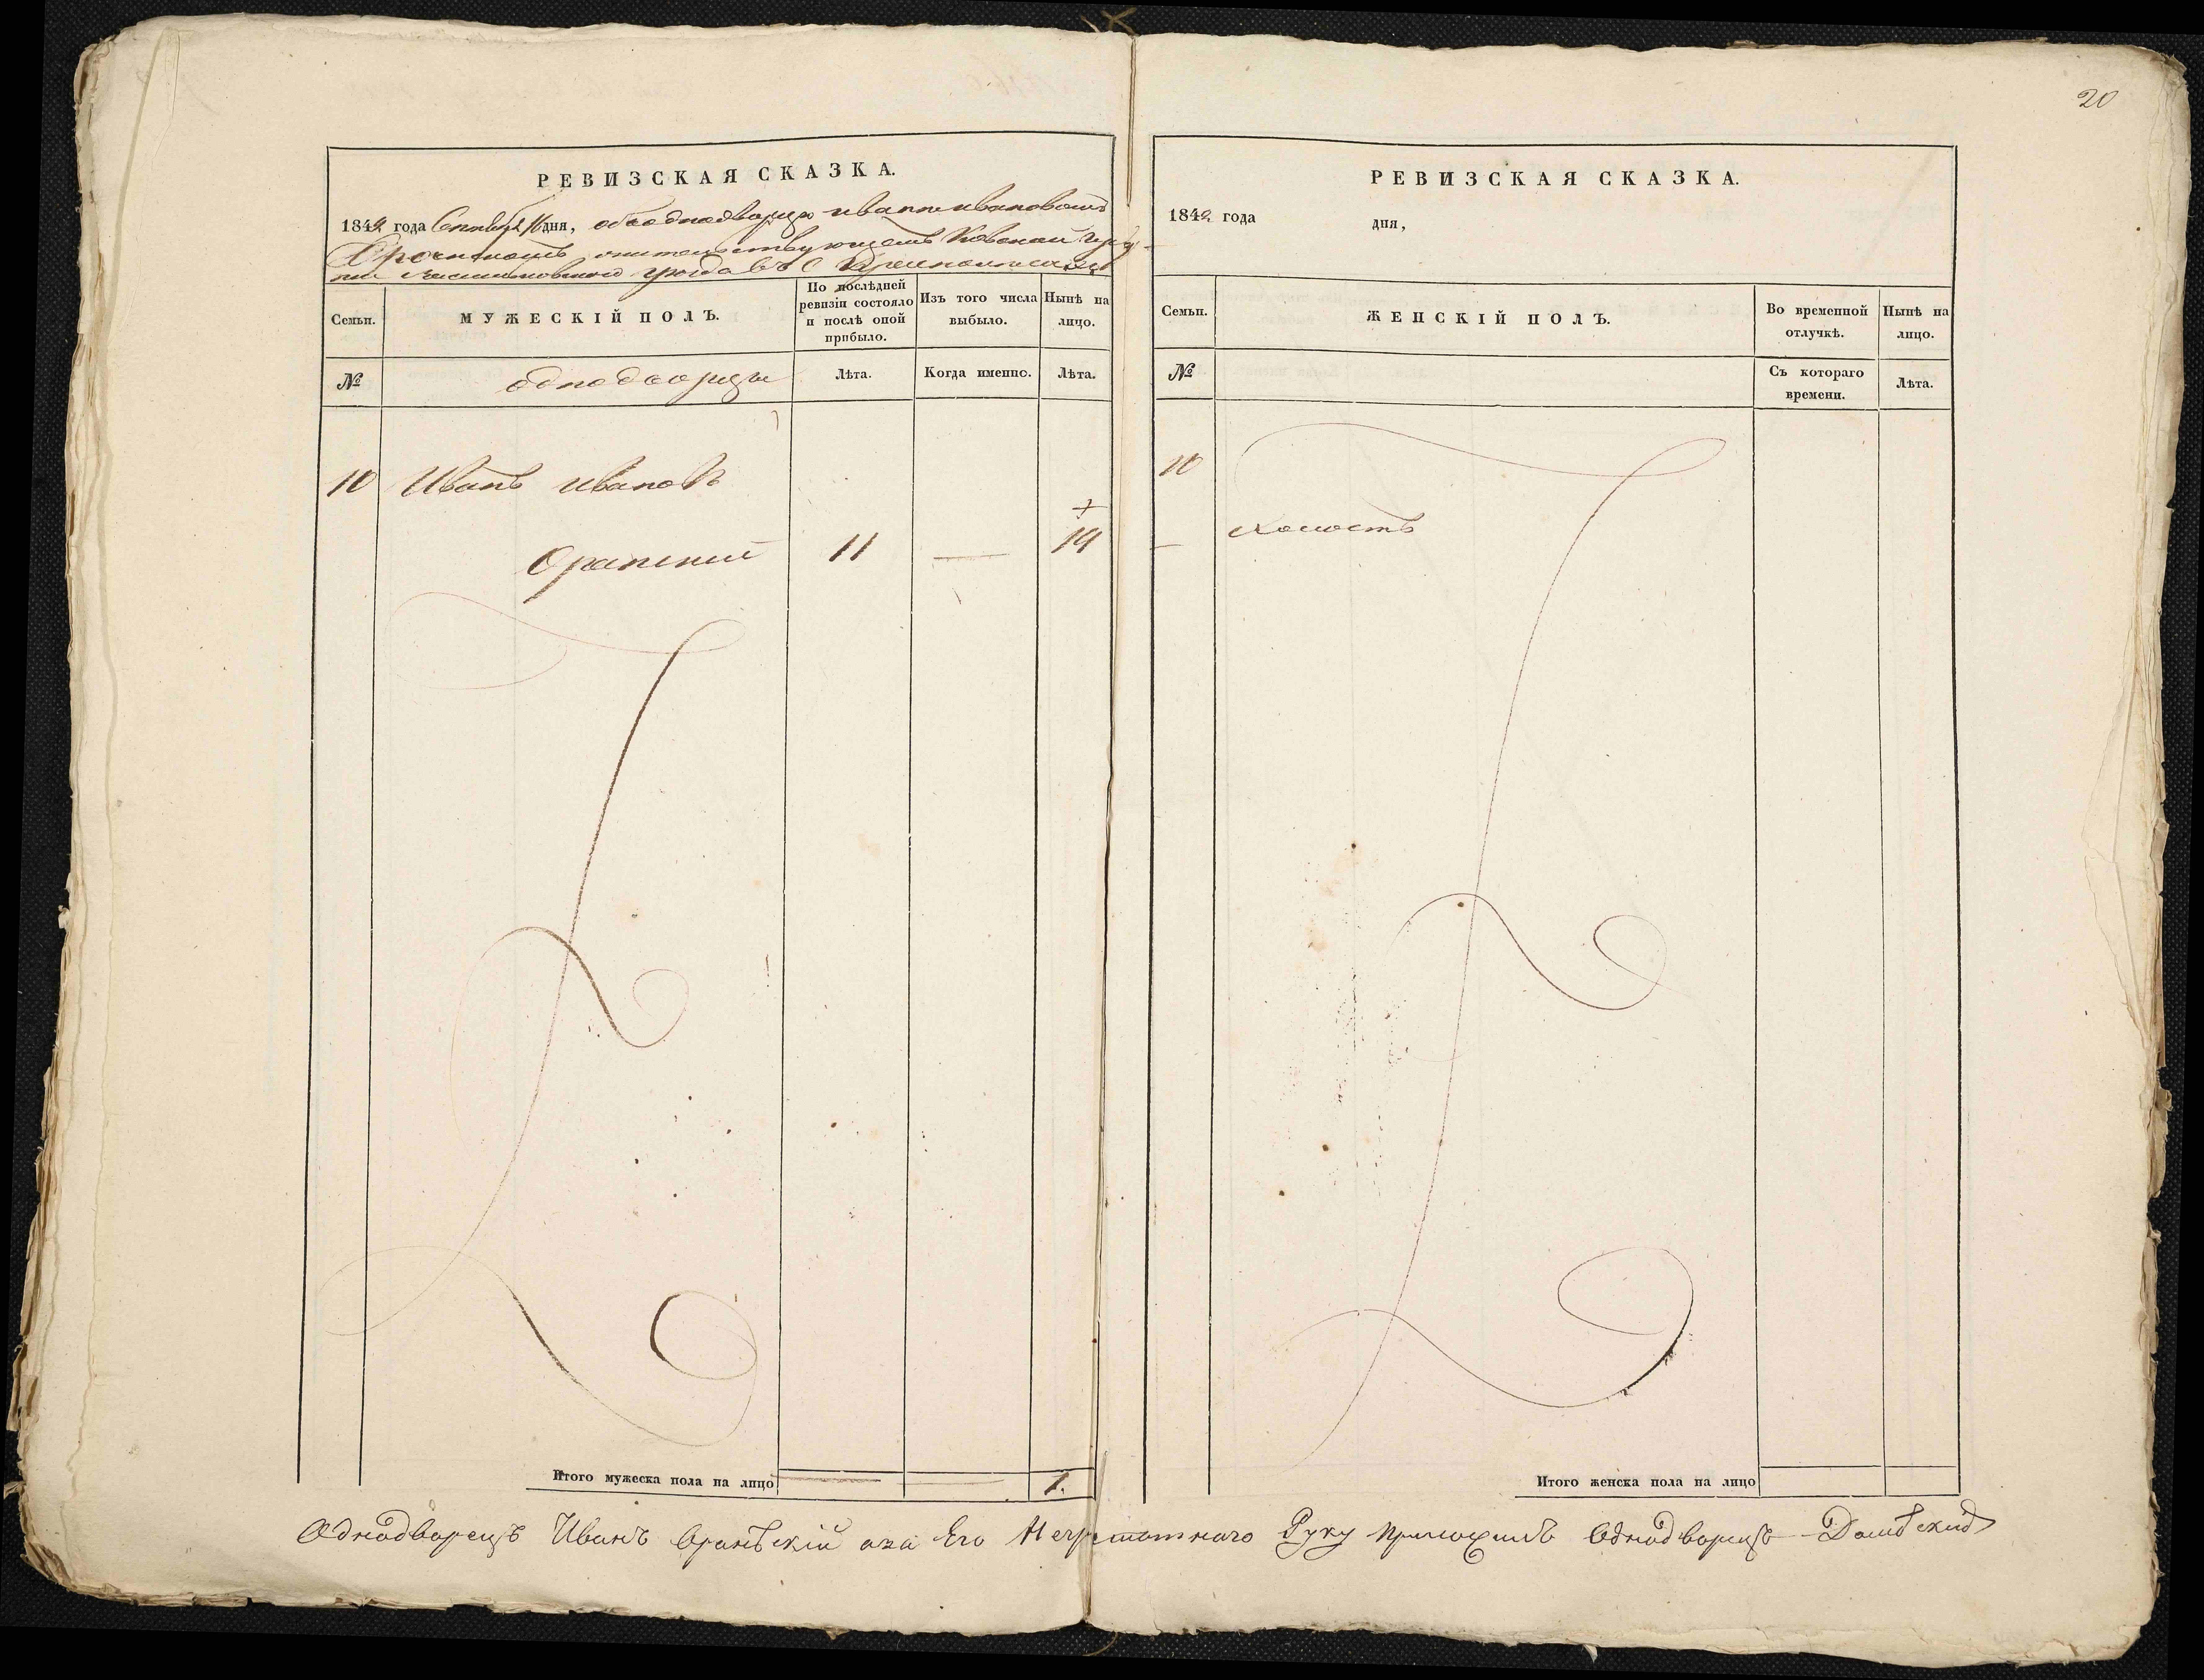 20
РЕВИЗСКАЯ СКАЗКА.
1842 года Сентября 16 дня, объ однодворце иване ивановомъ
жительствующемъ Ковенской Губер-
нии уезда въ
Семьи.
МУЖЕСКІЙ ПОЛЪ.
По послѣдней ревизіи состояло и послѣ оной прибыло.
Изъ того числа выбыло.
Нынѣ на лицо.
№
однодворцы
Лѣта.
Когда именно.
Лѣта.
10 Иванъ ивановъ
Оранский 11 — 19
Итого мужеска пола на лицо 1.
РЕВИЗСКАЯ СКАЗКА.
1842 года дня,
Семьи.
ЖЕНСКІЙ ПОЛЪ.
Во временной отлучкѣ.
Нынѣ на лицо.
№
Съ котораго времени.
Лѣта.
10
холостъ
Итого женска пола на лицо
Однодворецъ Иванъ Оранъскій аза Его Неграмотнаго Руку Приложилъ Однодворецъ